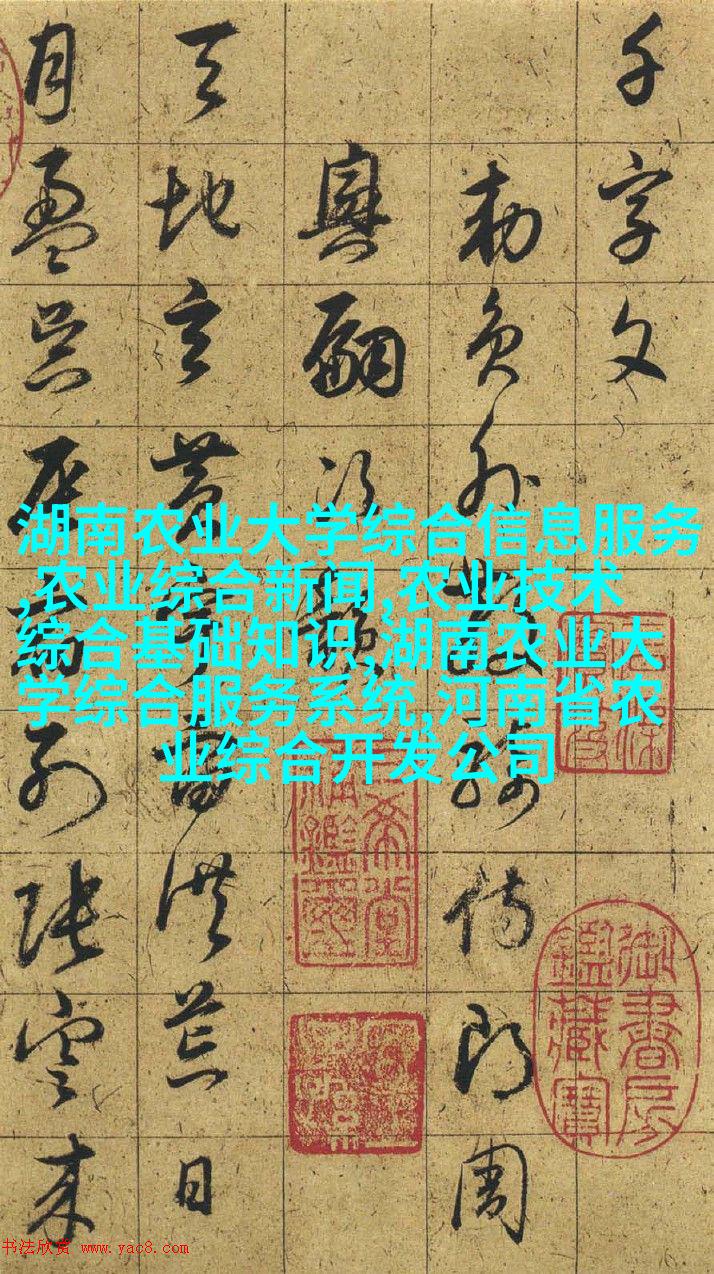 千字文
勑員外散騎侍郎周
興嗣次韻
天地玄黃宇宙洪荒日
月盈昃辰宿列張寒來
湖南农业大学综合信息服务
,农业综合新闻,农业技术
综合基础知识,湖南农业大
学综合服务系统,河南省农
业综合开发公司
三希堂精鑑璽
御書房鑑藏寶
书法欣赏 www.yac8.com